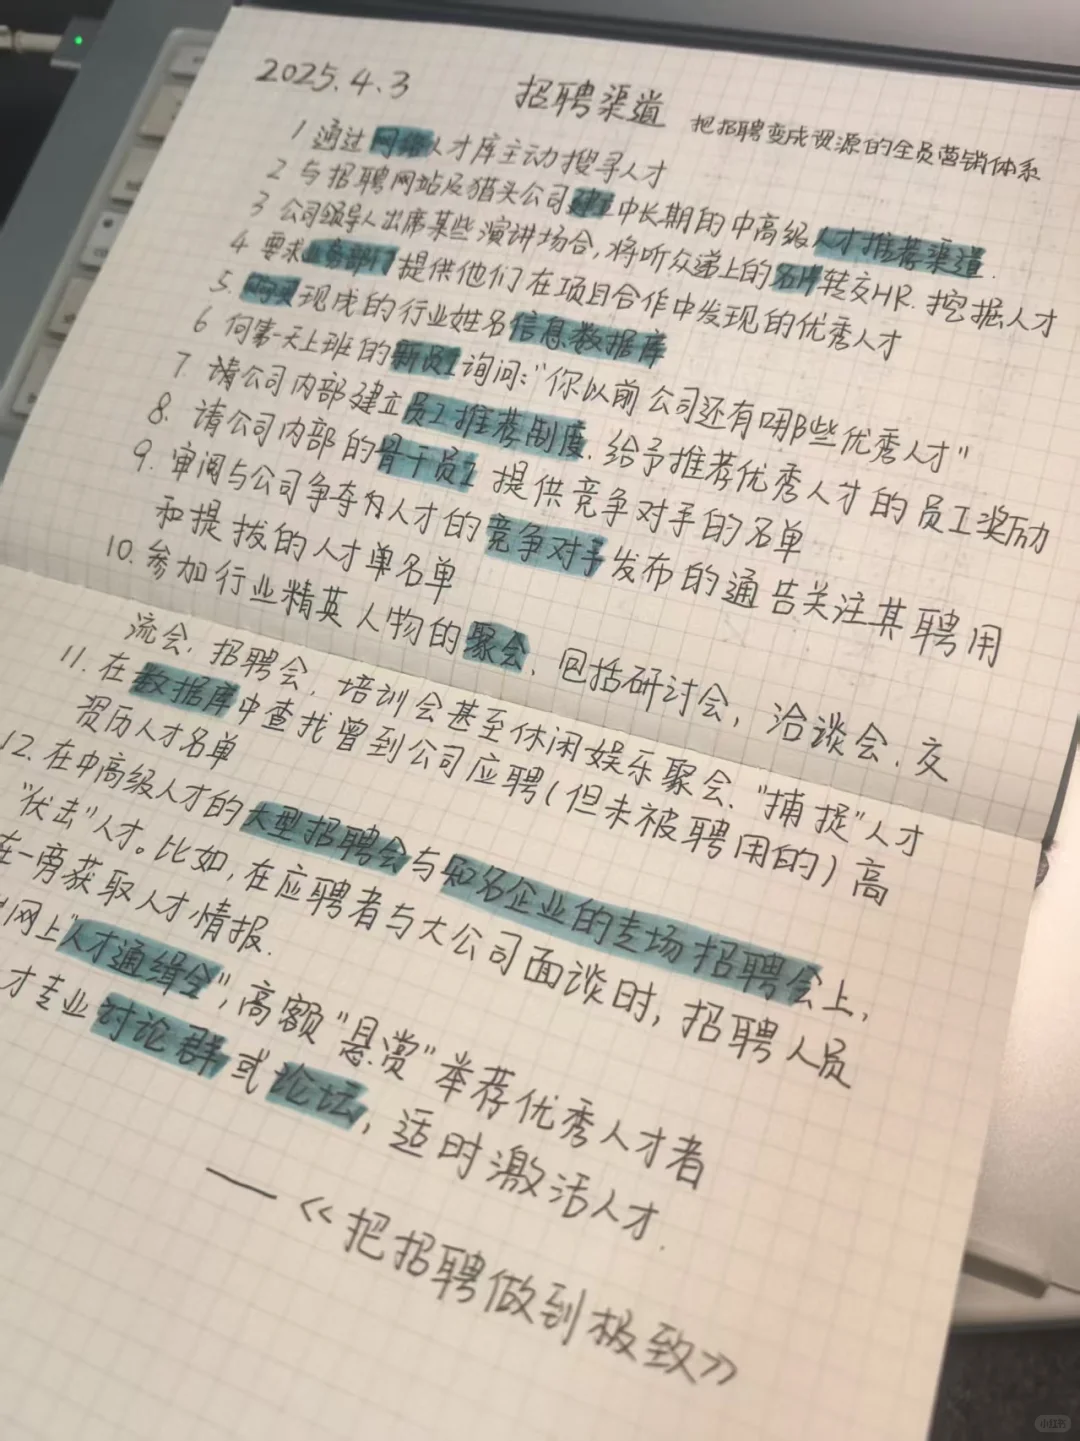 2025.4.3
招聘渠道 把招聘变成资源的全员营销体系
1 通过网络人才库主动搜寻人才
2 与招聘网站及猎头公司建立中长期的中高级人才推荐渠道.
3 公司领导人出席某些演讲场合,将听众递上的名片转交HR.挖掘人才
4 要求业务部门提供他们在项目合作中发现的优秀人才
5. 购买现成的行业姓名信息数据库
6 向第一天上班的新员工询问:“你以前公司还有哪些优秀人才”
7. 请公司内部建立员工推荐制度.给予推荐优秀人才的员工奖励
8. 请公司内部的骨干员工 提供竞争对手的名单
9. 审阅与公司争夺人才的竞争对手发布的通告关注其聘用
和提拔的人才单名单
10. 参加行业精英人物的聚会、包括研讨会,洽谈会.交
流会.招聘会,培训会甚至休闲娱乐聚会.“捕捉”人才
11. 在数据库中查找曾到公司应聘(但未被聘用的)高
资历人才名单
12. 在中高级人才的大型招聘会与知名企业的专场招聘会上,
“伏击”人才。比如,在应聘者与大公司面谈时,招聘人员
在一旁获取人才情报.
网上“人才通缉令”,高额“悬赏”举荐优秀人才者
才专业讨论群或论坛,适时激活人才.
——《把招聘做到极致》
小红书